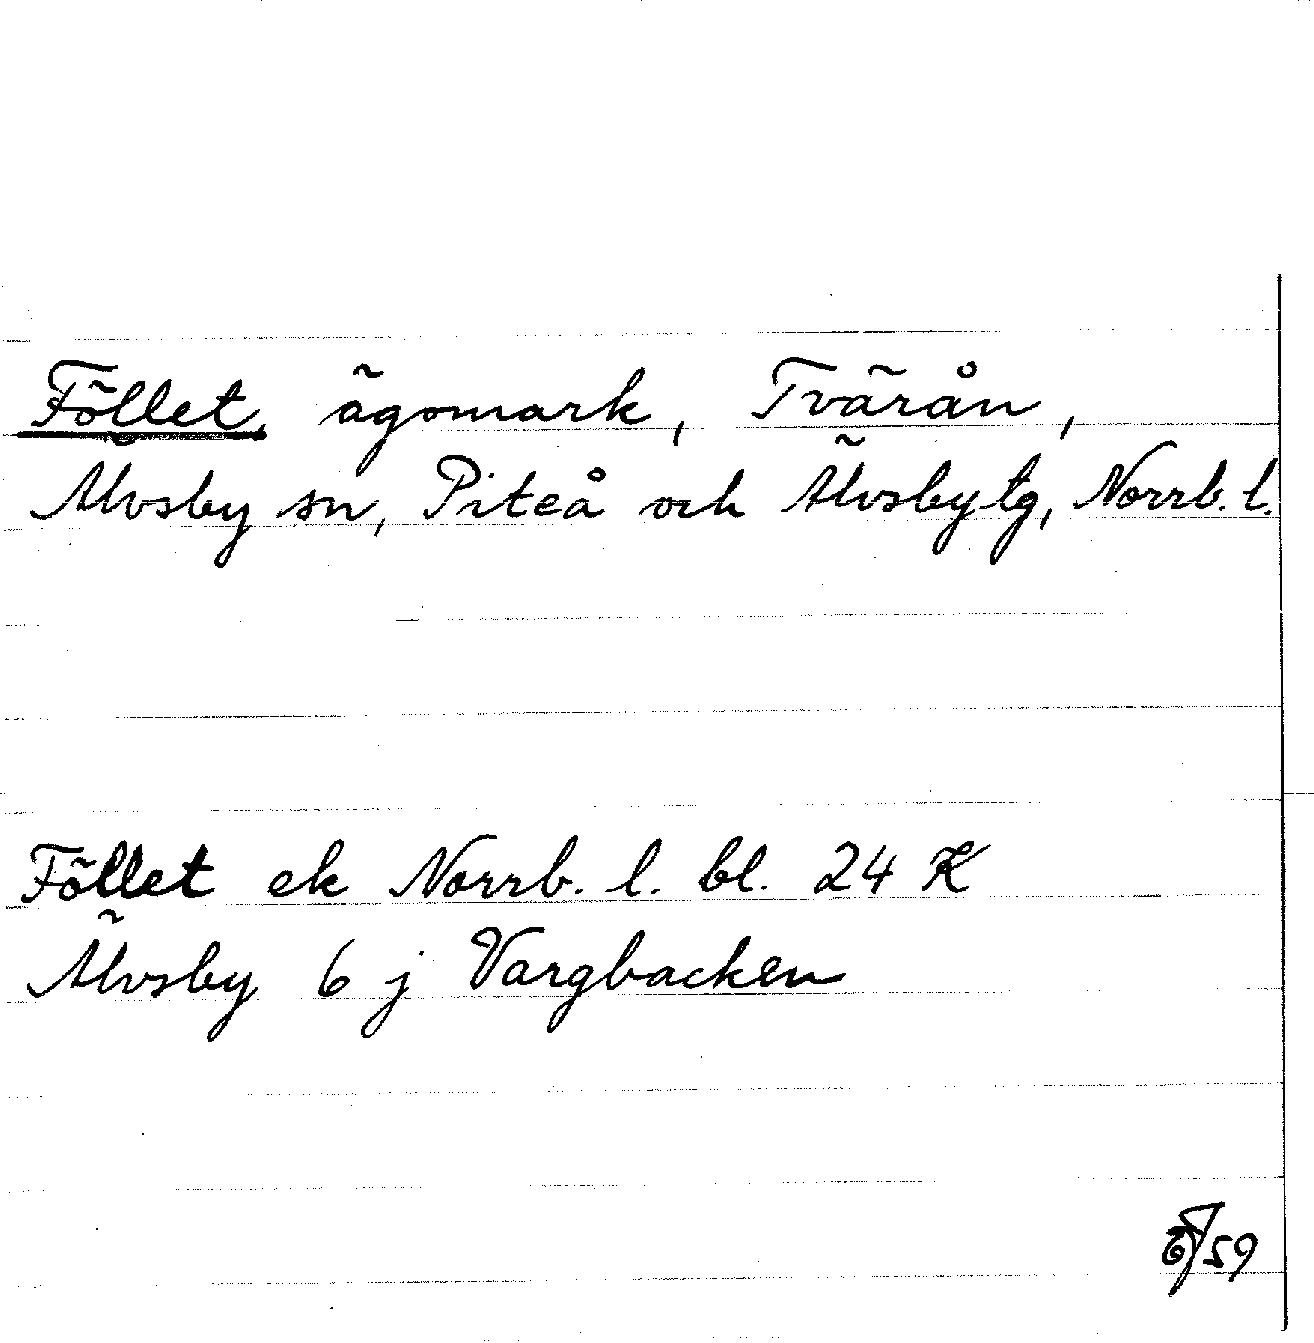 Föllet, ägomark, Tvärån,
Älvsby sn, Piteå och Älvsby tg, Norrb. l.
Föllet ek Norrb. l. bl. 24 K
Älvsby 6 j Vargbacken
/59